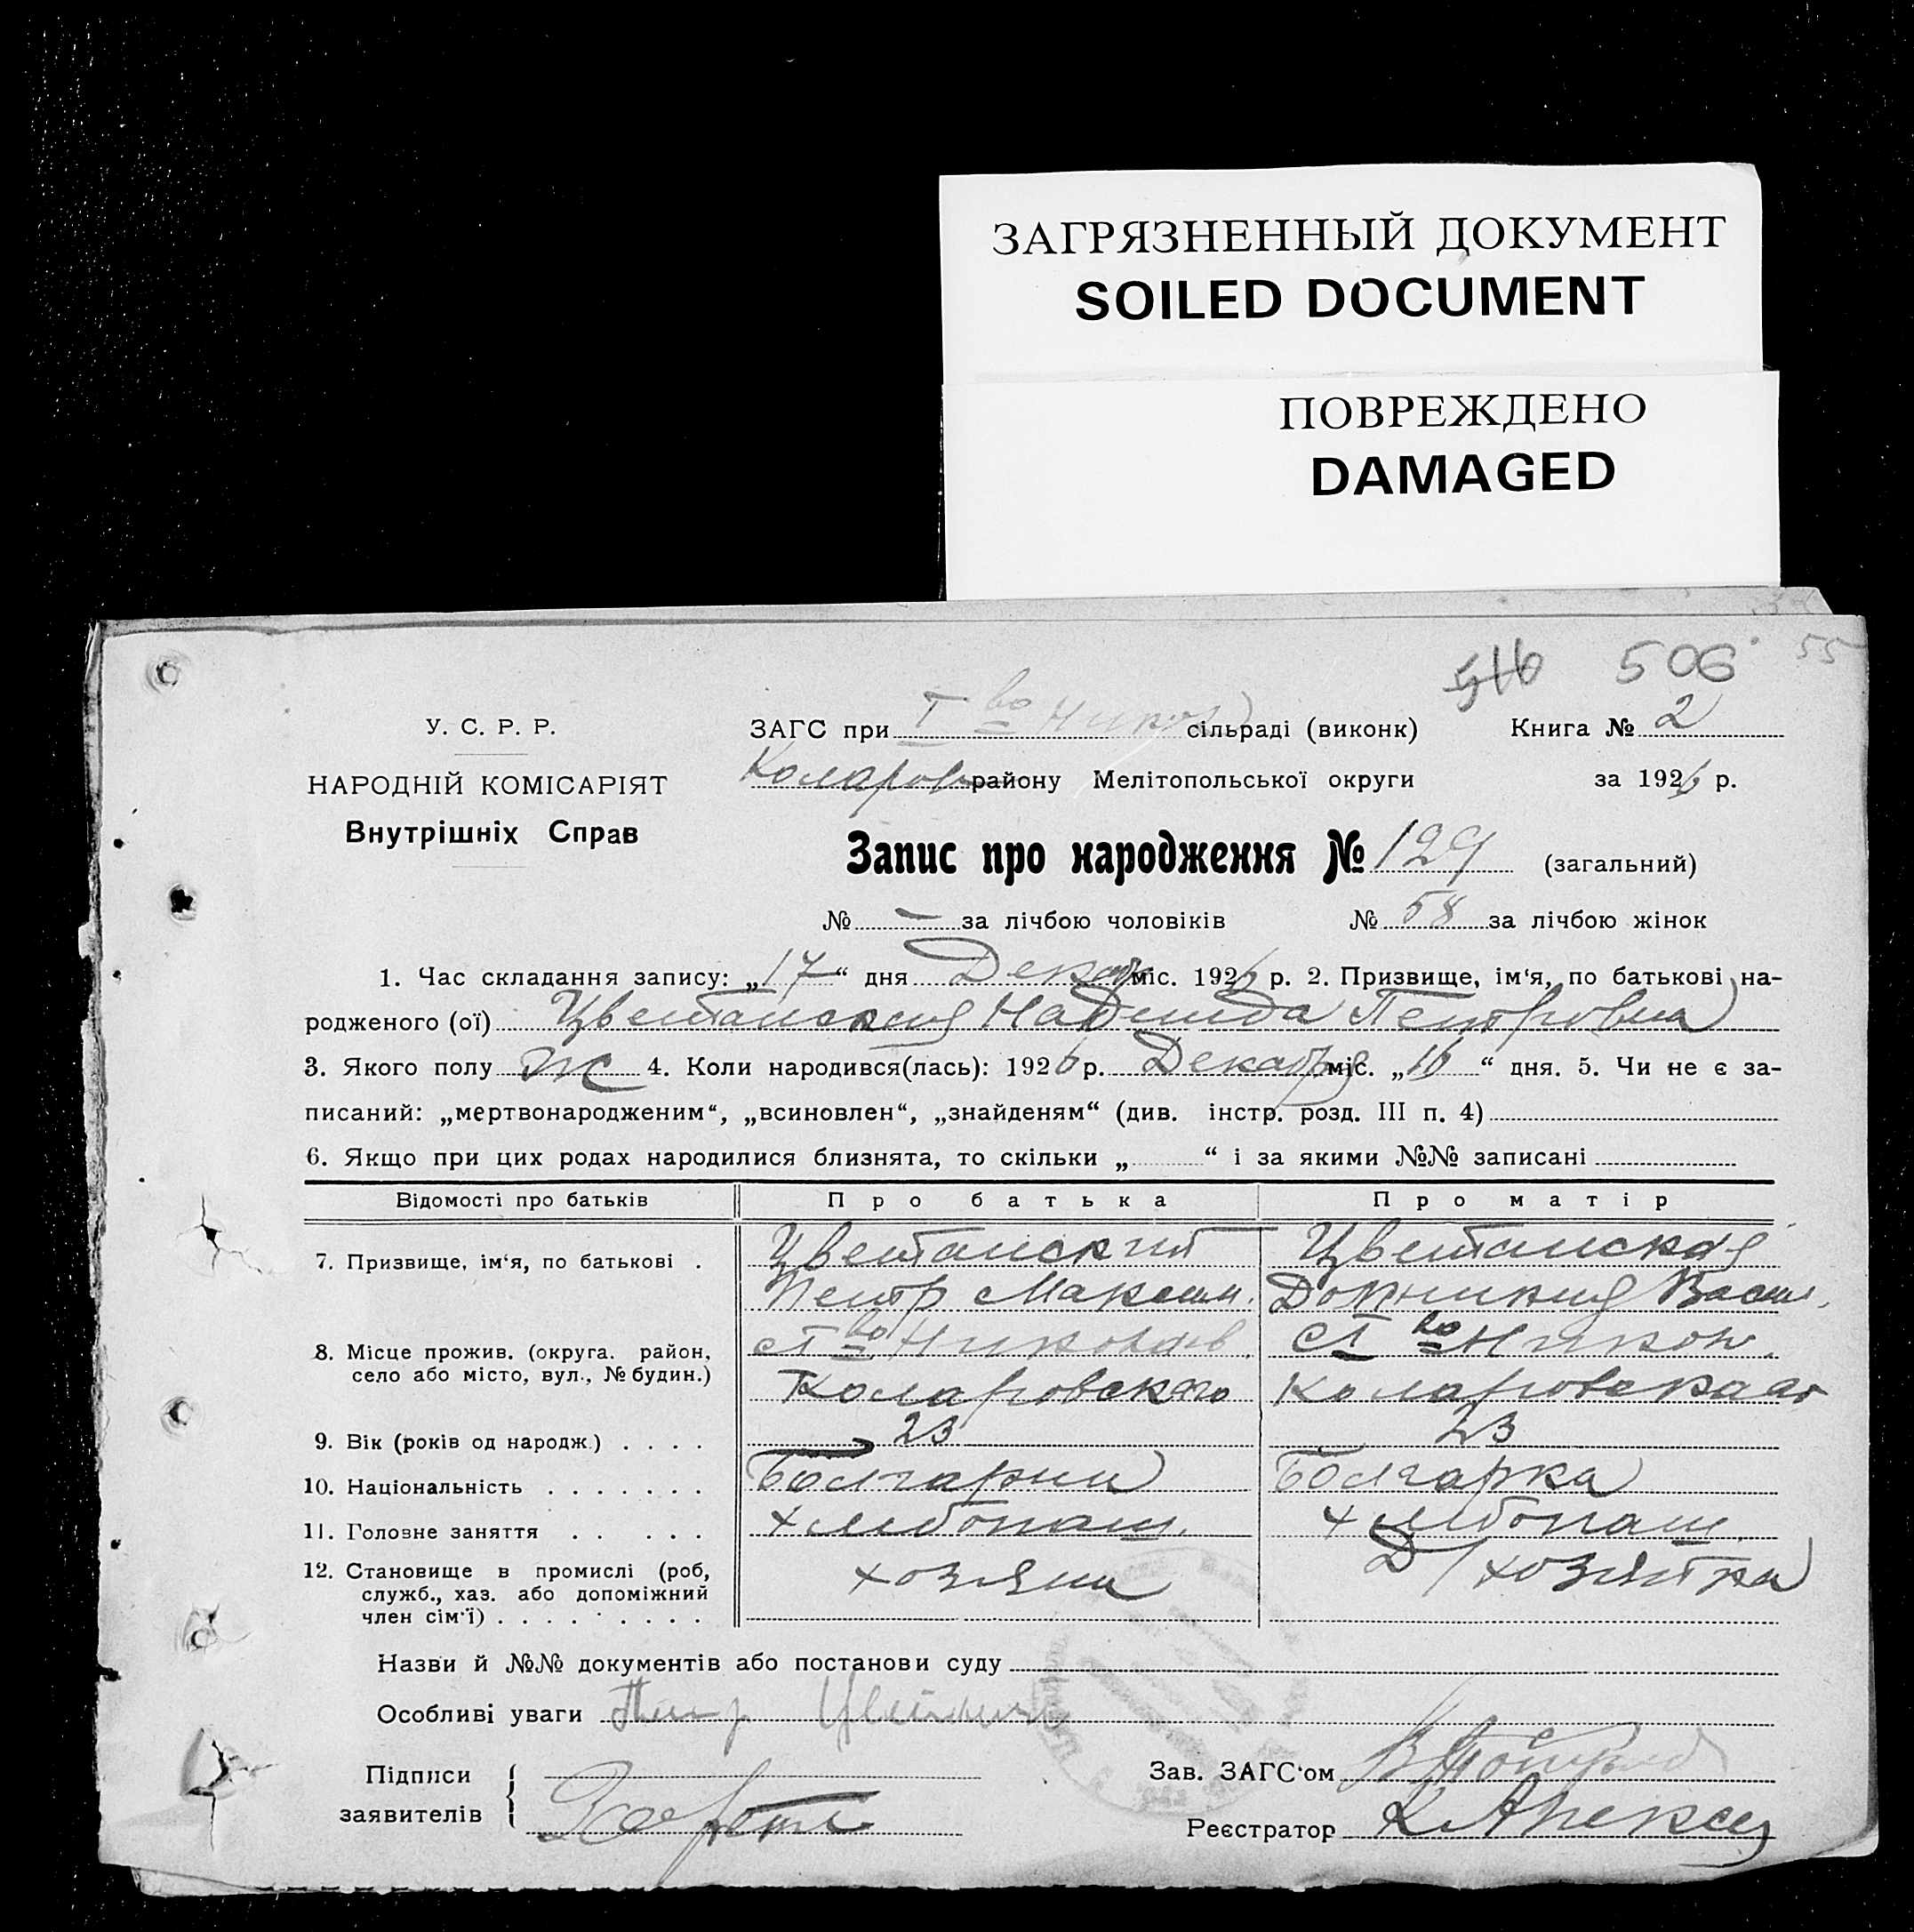 ЗАГРЯЗНЕННЫЙ ДОКУМЕНТ
SOILED DOCUMENT
ПОВРЕЖДЕНО
DAMAGED
516 506 55
У. С. Р. Р. ЗАГС при I во Никол сільраді (виконк) Книга № 2
НАРОДНІЙ КОМІСАРІЯТ Коларов району Мелітопольської округи за 1926 р.
Внутрішніх Справ
Запис про народження № 129 (загальний)
№ – за лічбою чоловіків № 58 за лічбою жінок
1. Час складання запису: „17“ дня Декаб міс. 1926 р. 2. Призвище, ім‘я, по батькові на-
родженого (ої) Цветанская Надежда Петровна
3. Якого полу Ж 4. Коли народився(лась): 1926 р. Декабря міс. „16“ дня. 5. Чи не є за-
писаний: „мертвонародженим“, „всиновлен“, „знайденям“ (див. інстр. розд. III п. 4)
6. Якщо при цих родах народилися близнята, то скільки „ “ і за якими №№ записані
Відомості про батьків Про батька Про матір
7. Призвище, ім‘я, по батькові . Цветанский Цветанская
Петр Максим. Васил.
8. Місце прожив. (округа. район, с I во Николаев. с I во Никол.
село або місто, вул., № будин.) Коларовского Коларовского
9. Вік (років од народж.) . . . . 23 23
10. Національність . . . . . . . Болгарин Болгарка
11. Головне заняття . . . . . Хлебопаш. Хлебопаш.
12. Становище в промислі (роб, хозяин Д/хозяйка
служб., хаз. або допоміжний
член сім‘ї) . . . . . . . . .
Назви й №№ документів або постанови суду
Особливі уваги Петр
Підписи Зав. ЗАГС‘ом
заявителів
Реєстратор К Алексе